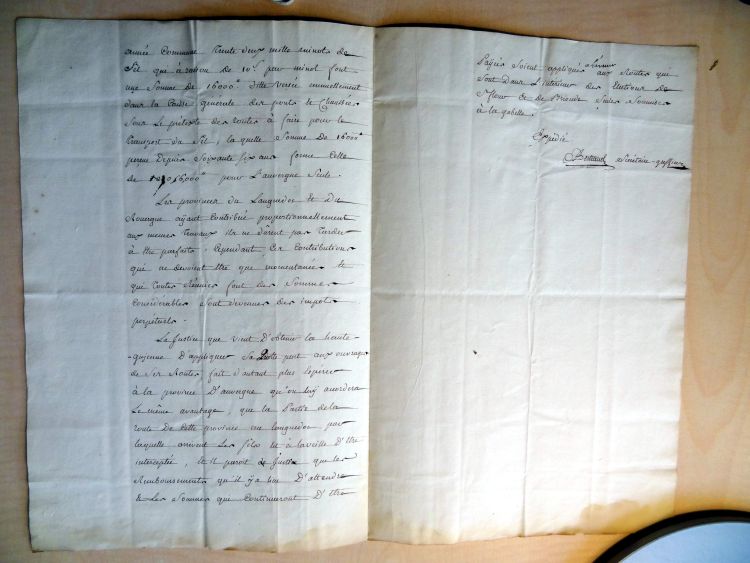 année Commune trente deux mille minots de
Sel que à raison de 10s. par minot font
une Somme de 16000lt ditte versée annuellement
dans la Caisse generale des ponts et chaussées
Sous le prétexte des routes à faire pour le
transport du Sel, la quelle Somme de 16000lt
perçue Depuis Soixante six ans forme celle
de 1,016,000lt pour L'auvergne Seule.
Les provinces du Languedoc et Du
Rouergue ayant contribué proportionnellement
aux memes travaux ils ne dûrent pas tarder
à être parfaits. Cependant Ces Contributions
qui ne devoient être que momentanées et
qui toutes réunies font des Sommes
considerables Sont devenues des impots
perpetuels.
La Justice que vient D'obtenir la haute-
guyenne D'appliquer Sa Cotte part aux ouvrages
de Ses Routes fait d'autant plus esperer
à la province D'auvergne qu'on luy accordera
Le même avantage, que la Partie de la
route De Cette province en Languedoc par
laquelle arrivent Les Sels est à la veille D'être
interceptée, et il paroit de Justice que les
Remboursements qu'il y a lieu D'attendre
et Les Sommes que Continueront D'être
Payées Soient appliquées aux Routes qui
Sont Dans L'interieur des Elections de
St flour et de Brioude Seules Soumises
à la gabelle.
Expédié
Secrétaire-greffier